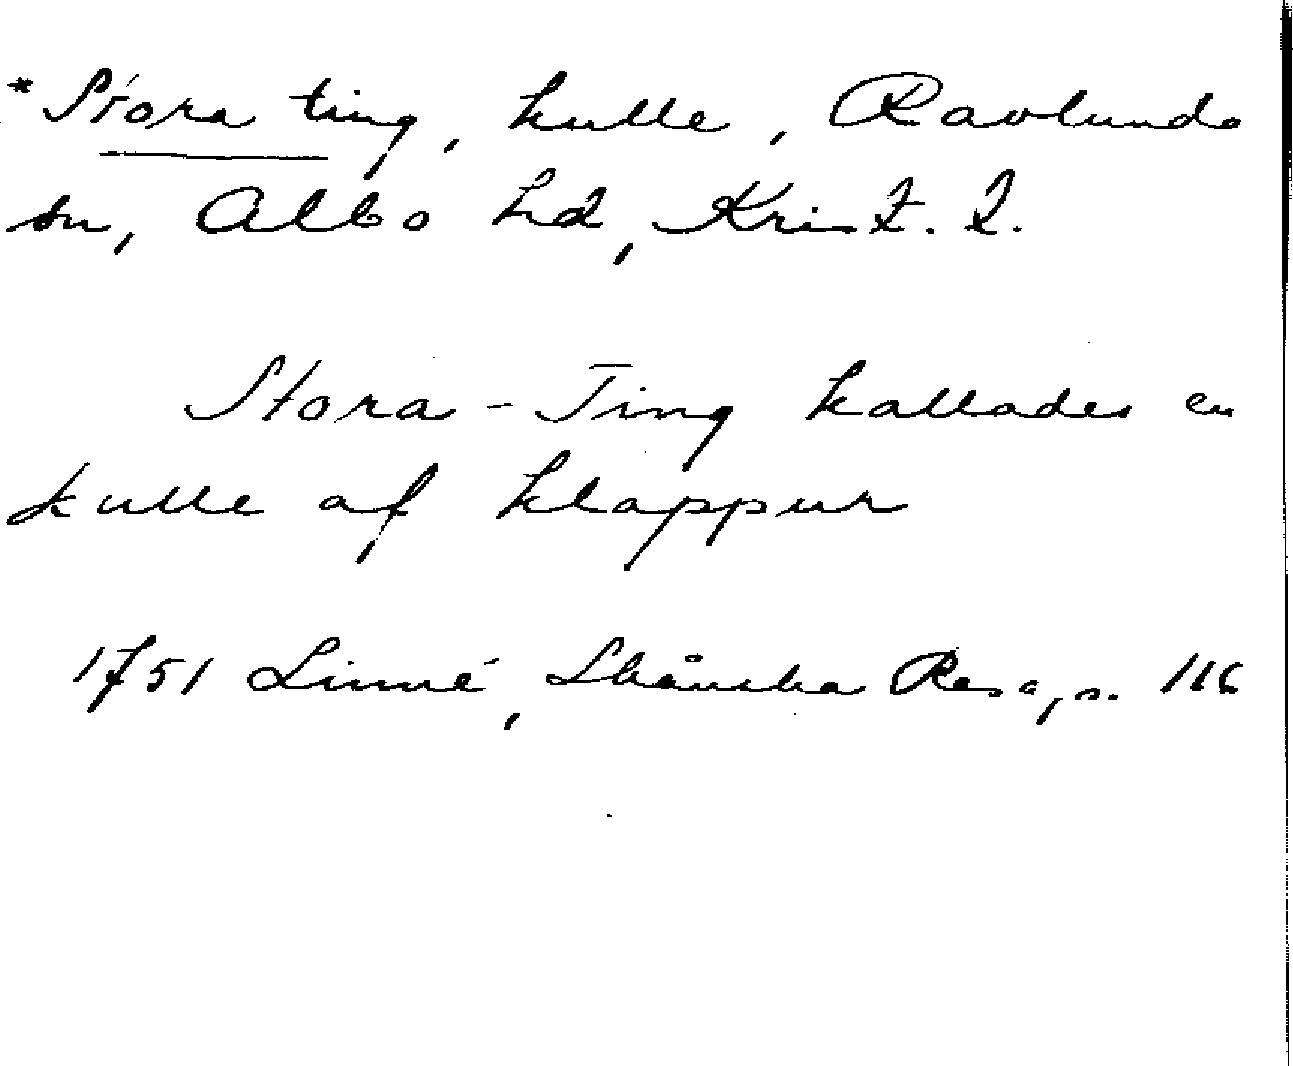 *Stora ting, kulle, Ravlunda
sn, Albo hd, Krist. l.
Stora-Ting kallades en
kulle af klappur
1751 Linné, Skånska Resa, s. 116